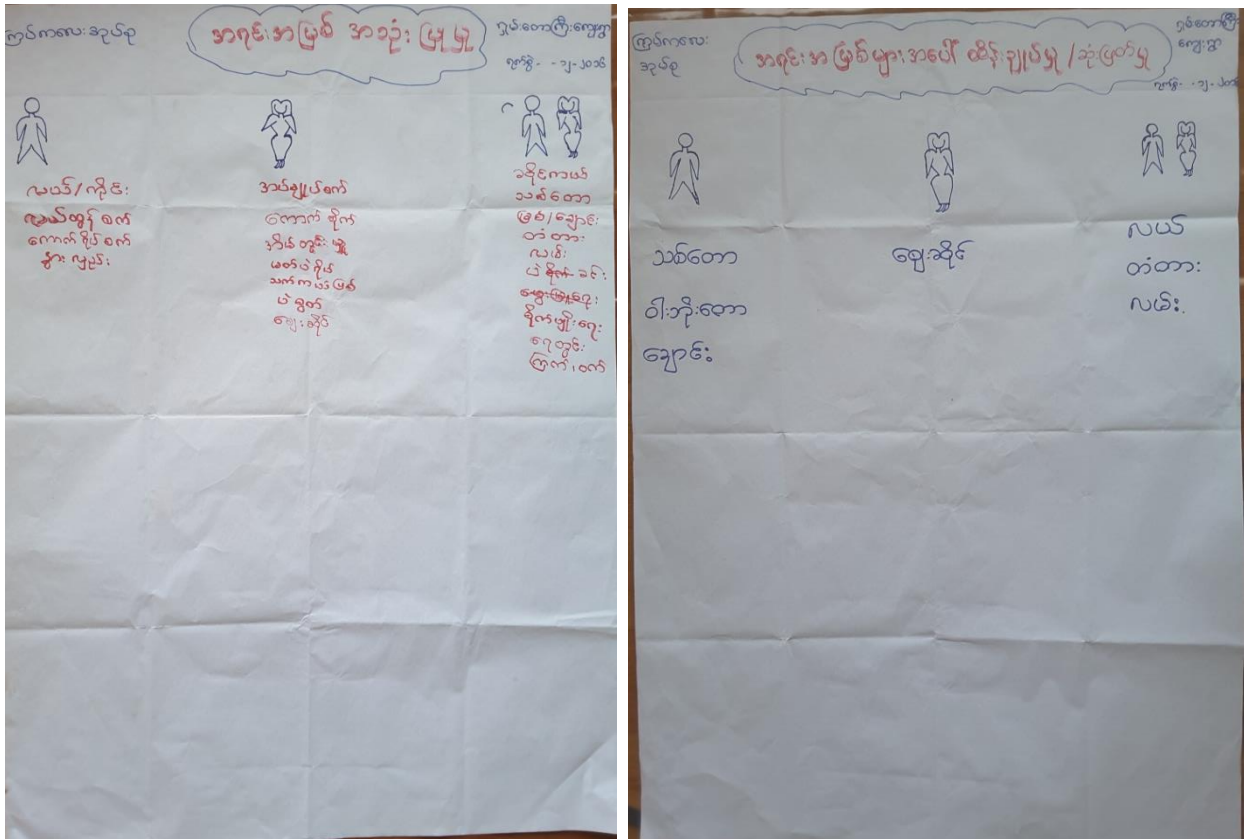 ကြပ်ကလေးအုပ်စု
အရင်းအမြစ် အသုံးပြုမှု
ရှမ်းတောကြီးကျေးရွာ
ရက်စွဲ- -၁၂-၂၀၁၆
လယ်/ကိုင်း
လယ်ထွန်စက်
ကောက်စိုက်စက်
နွားလှည်း
အပ်ချုပ်စက်
ကောက်စိုက်
မတ်ပဲစိုက်
သက်ကယ်ပြစ်
ပဲနွှတ်
ဈေးဆိုင်
သစ်တော
မြစ်/ချောင်း
တံတား
လမ်း
ပဲစိုက်ခင်း
မွေးမြူရေး
စိုက်ပျိုးရေး
ရေတွင်း
ကြက်၊ဝက်
ကြပ်ကလေး
အုပ်စု
အရင်းအမြစ်များအပေါ် ထိန်းချုပ်မှု/ဆုံးဖြတ်မှု
ရှမ်းတောကြီး
ကျေးရွာ
သစ်တော
ဝါးဘိုးတော
ချောင်း
ဈေးဆိုင်
လယ်
တံတား
လမ်း